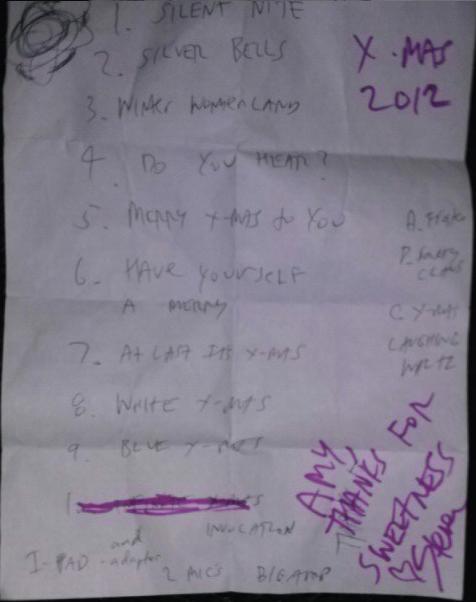 1. SILENT NITE
2. SILVER BELLS
3. WINTER WONTERLAND
4. DO YOU HEAR?
5. MERRY X-MAS to YOU
6. HAVE YOURSELF
A MERRY
7. At LAST ITS X-MAS
8. WHITE X-MAS
9. BLUE X-MAS
INVOCATION
I-PAD - and adaptor
2 MICS
X-MAS
2012
C. X-MAS
LAUGHING
WALTZ
AMY,
THANKS FOR
SWEETNESS